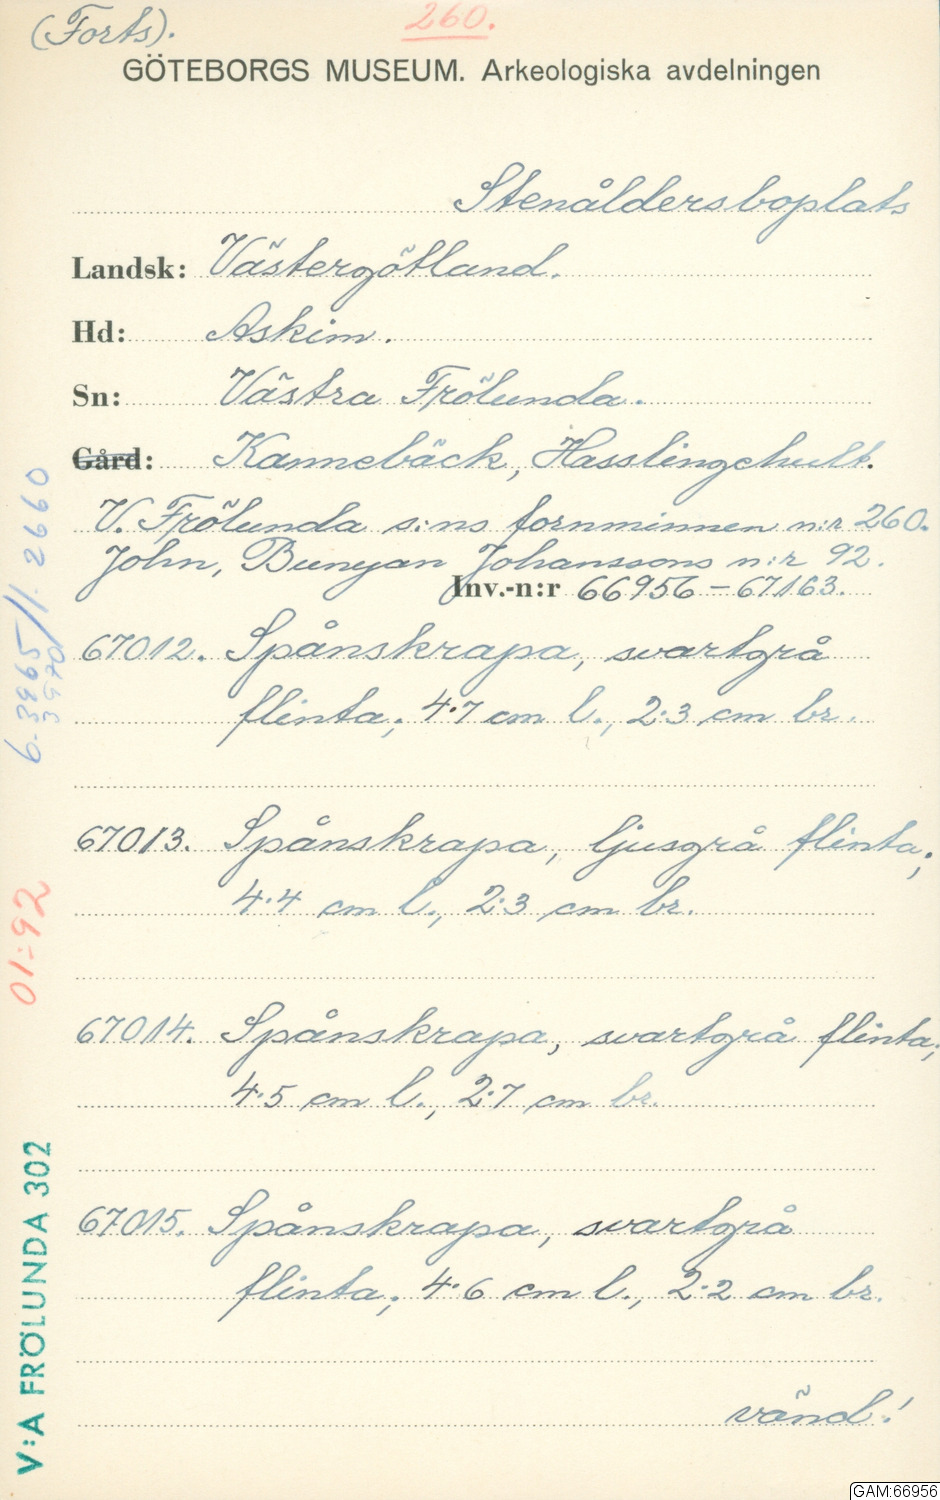 (Forts).
260.
GÖTEBORGS MUSEUM. Arkeologiska avdelningen
Stenåldersboplats
Landsk: Västergötland.
Hd: Askim.
Sn: Västra Frölunda.
Gård: Kannebäck, Hasslingehult.
V. Frölunda s:ns fornminnen n:r 260.
John, Bunyan Johanssons n:r 92.
Inv.-n:r 66956 – 67163.
67012. Spånskrapa, svartgrå
flinta; 4.7 cm l., 2.3 cm br.
67013. Spånskrapa, ljusgrå flinta;
4.4 cm l., 2.3 cm br.
67014. Spånskrapa, svartgrå flinta;
4.5 cm l., 2.7 cm br.
67015. Spånskrapa, svartgrå
flinta; 4.6 cm l., 2.2 cm br.
vänd!
6.3965/1.2660
3970
01:92
V:A FRÖLUNDA 302
GAM:66956